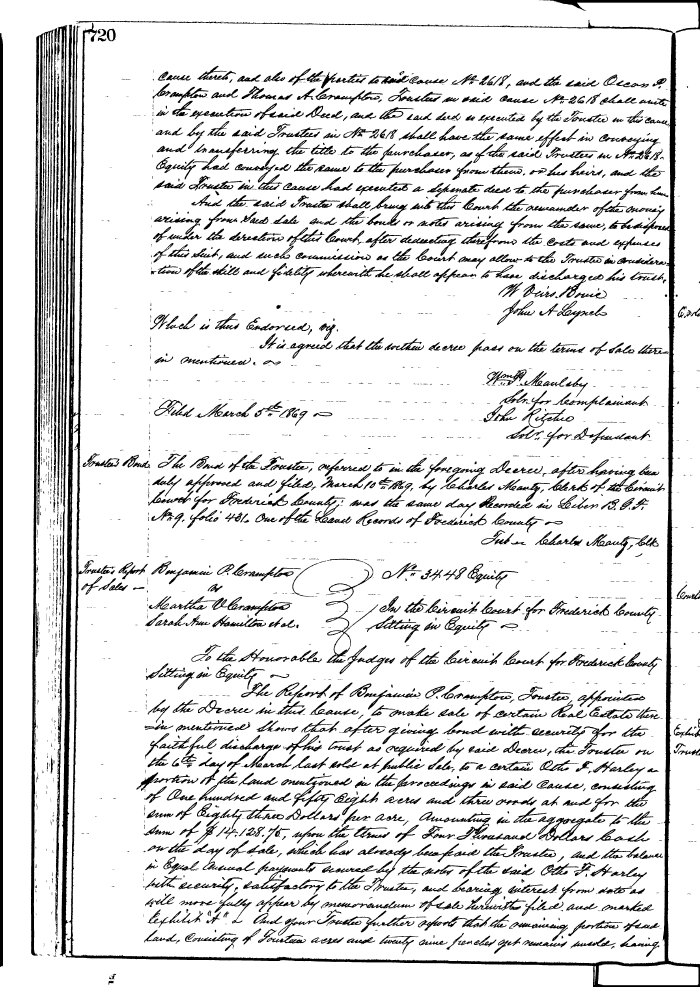 720
cause thereto, and also of the parties to said cause No. 2618, and the said Oscar P.
Crampton and Thomas A. Crampton, Trustees in said cause No. 2618 shall unite
in the execution of said Deed, and the said deed so executed by the Trustee in this cause
and by the said Trustees in No. 2618 shall have the same effect in conveying
and transferring the title to the purchaser, as if the said Trustees in No. 2618
Equity had conveyed the same to the purchaser from them, or his heirs, and the
said Trustee in this cause had executed a seperate deed to the purchaser from him
And the said Trustee shall bring into this Court the remainder of the money
arising from said sale and the bonds or notes arising from the same, to be disposed
of under the direction of this Court, after deducting therefrom the costs and expenses
of this suit, and such commission as the Court may allow to the Trustee in considera
-tion of the skill and fidelity wherewith he shall appear to have discharged his trust,
W. Veirs Bouic
John A. Lynch
Which is thus Endorsed, viz.
It is agreed that the within decree pass on the terms of sale there-
in mentioned.
Wm. P. Maulsby
Solr. for Complainant
Filed March 5th. 1869
John Ritchie
Solr. for Defendant
Trustee's Bond
The Bond of the Trustee, referred to in the foregoing Decree, after having been
duly approved and filed, March 10th 1869, by Charles Mantz, Clerk of the Circuit
Court for Frederick County; was the same day Recorded in Liber
No 9, folio 431. One of the Land Records of Frederick County
Test Charles Mantz, Clk
Trustee's Report
of Sales
Benjamin P. Crampton
vs
Martha V Crampton
Sarah Ann Hamilton et al.
No. 3448 Equity
In the Circuit Court for Frederick County
Sitting in Equity
To the Honorable the Judges of the Circuit Court for Frederick County
Sitting in Equity
The Report of Benjamin P. Crampton, Trustee, appointed
by the Decree in this Cause, to make sale of certain Real Estate there
-in mentioned Shows that after giving bond with security for the
faithful discharge of his trust as required by said Decree, the Trustee on
the 6th day of March last sold at public sale, to a certain Otho F. Harley a
portion of the land mentioned in the proceedings in said Cause, consisting
of One hundred and fifty Eight acres and three roods at and for the
sum of Eighty three Dollars per acre, Amounting in the aggregate to the
sum of $14.128.75, upon the terms of Four Thousand Dollars Cash
on the day of sale, which has already been paid the Trustee, and the balance
in Equal annual payments secured by the notes of the said Otho F. Harley
with security, satisfactory to the Trustee, and bearing interest from date as
will more fully appear by memorandum of sale herewith filed and marked
Exhibit "A" - And your Trustee further reports that the remaining portion of said
land, Consisting of Fourteen acres and twenty nine perches yet remains unsold, having